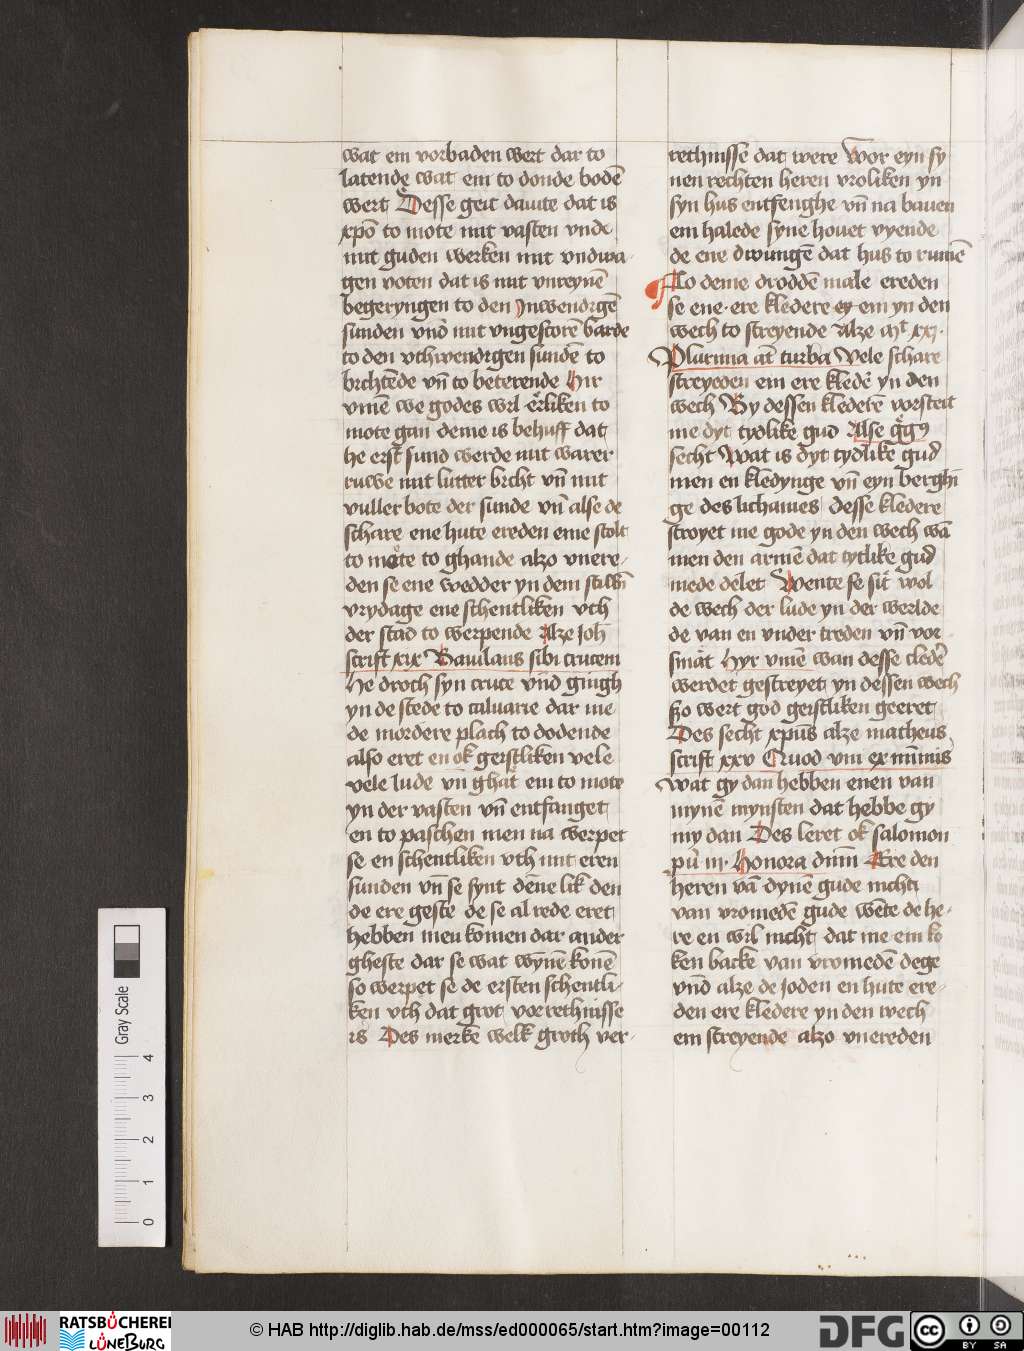 wat em vorbaden wert dar to
latende wat em to donde bodē
wert Desse geit dauite dat is
xpō to mote mit vasten vnde
mit guden werken mit vndwa-
gen voten dat is mit vnreynē
begeryngen to den Inwendigē
sunden vnd mit vngestorē barde
to den vthwendigen sundē to
bichtēde vn̄ to beterende Hir
vmē we godes wil erliken to
mote gan deme is behuff dat
he erst sund werde mit warer
ruwe mit lutter bicht vn̄ mit
vuller bote der sunde vn̄ alse de
schare ene hute ereden eme stolt
to mote to ghande alzo vnere-
den se ene wedder yn dem stillē
vrydage ene schentliken vth
der stad to werpende Alze Joh̄
script xix Baiulans sibi crucem
He droch syn cruce vnd gingh
yn de stede to caluarie dar me
de mordere plach to dodende
also eret en ok geistliken vele
vele lude vn̄ ghat em to mote
yn der vasten vn̄ entfanget
en to paschen men na werpet
se en schentliken vth mit eren
sunden vn̄ se synt dēne lik den
de ere geste de se al rede eret
hebben men komen dar ander
gheste dar se wat wynē konē
so werpet se de ersten schentli-
ken vth dat grot vorrethnisse
is Des merkē welk groth ver-
rethnisse dat were Wor eyn sy
nen rechten heren vroliken yn
syn hus entfenghe vn̄ na bauen
em halede syne houet vyende
de ene dwungē dat hus to rumē
Alo deme droddē male ereden
se ene ere kledere ey em yn den
wech to streyende Alze mt xxi.
Plurima at̄ turba Vele schare
streyeden em ere kledē yn den
wech By dessen klederē vorsteit
me dyt tydlikē gud Alse gg9
secht Wat is dyt tydlikē gud
men en kledynge vn̄ eyn berghī
ge des lichames Desse kledere
stroyet me gode yn den wech wā
men den armē dat tytlike gud
mede delet Wente se sit wol
de wech der lude yn der werlde
de van en vnder treden vn̄ vor
smāt Hyr vmē wan desse cledē
werdet gestreyet yn dessen wech
szo wert god geistliken geeret
Des secht xpūs alze matheus
script xxv Quod vni ex mīmis
Wat gy dan hebben enen van
mynē mynsten dat hebbe gy
my dan Des leret ok salomon
pū iii. Honora dnm̄ Ere den
heren vā dynē gude nicht
van vromedē gude wēte de he-
re en wil nicht dat me em ko
ken backe van vromedē dege
vnd alze de Joden en hute ere-
den ere kledere yn den wech
em streyende alzo vnereden
Gray Scale
4
3
2
1
0
RATSBÜCHEREI
LÜNEBURG
© HAB http://diglib.hab.de/mss/ed000065/start.htm?image=00112
DFG
cc
BY SA